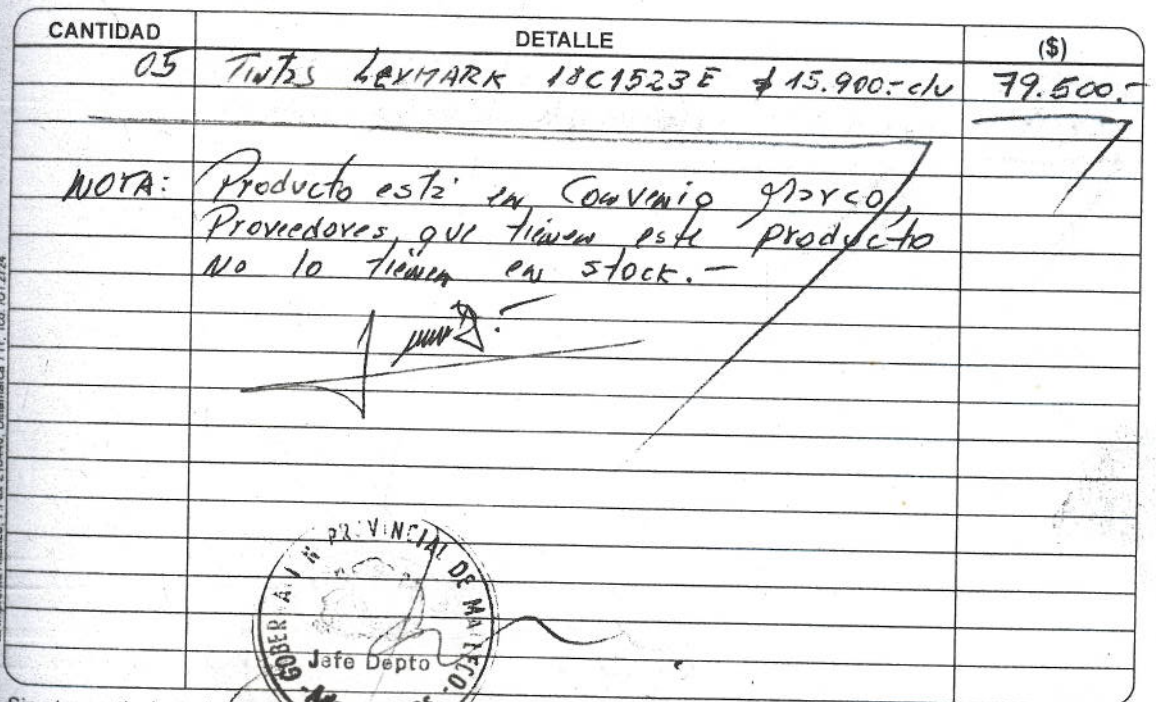 CANTIDAD DETALLE ($)
05 Tintas LEXMARK 18C1523E $15.900.- c/u 79.500.-
NOTA: Producto está en Convenio Marco,
Proveedores que tienen este producto
No lo tienen en stock.-
PROVINCIAL DE MALLECO
Jefe Depto